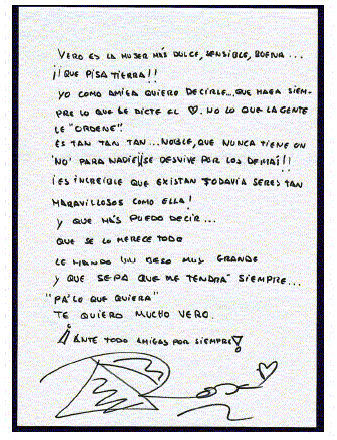 VERO ES LA MUJER MÁS DULCE, SENSIBLE, BUENA...
¡¡QUE PISA TIERRA!!
YO COMO AMIGA QUIERO DECIRLE... QUE HAGA SIEM-
PRE LO QUE LE DICTE EL ♡. NO LO QUE LA GENTE
LE "ORDENE".
ES TAN TAN TAN... NOBLE, QUE NUNCA TIENE UN
'NO' PARA NADIE ¡¡SE DESVIVE POR LOS DEMÁS!!
¡ES INCREIBLE QUE EXISTAN TODAVÍA SERES TAN
MARAVILLOSOS COMO ELLA!
Y QUE MÁS PUEDO DECIR...
QUE SE LO MERECE TODO
LE MANDO UN BESO MUY GRANDE
Y QUE SEPA QUE ME TENDRÁ SIEMPRE...
"PA' LO QUE QUIERA"
TE QUIERO MUCHO VERO.
¡ANTE TODO AMIGAS POR SIEMPRE!